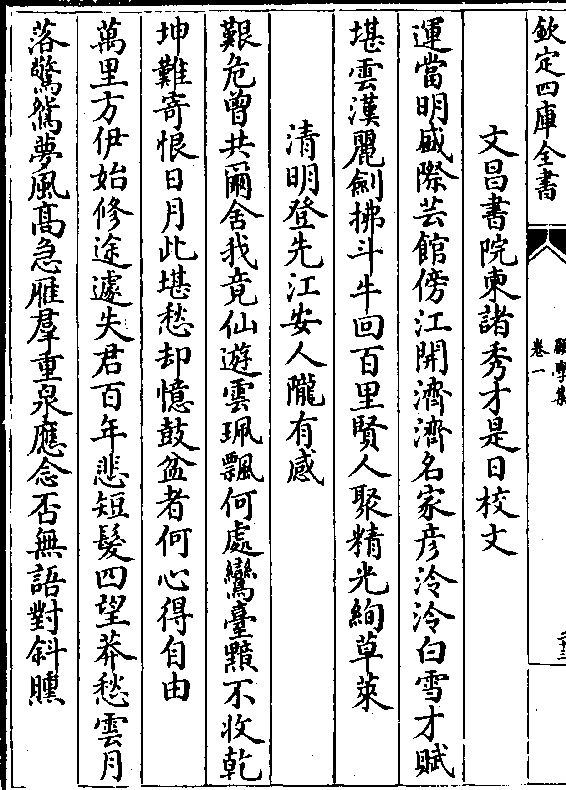 欽定四庫全書
卷一
文昌書院柬諸秀才是日校文
運當明盛際芸館傍江開濟濟名家彦泠泠白雪才賦
堪雲漢麗劍拂斗牛回百里賢人聚精光絢草萊
清明登先江安人隴有感
艱危曾共爾舍我竟仙遊雲珮飄何處鸞臺黯不收乾
坤難寄恨日月此堪愁却憶鼓盆者何心得自由
萬里方伊始修途遽失君百年悲短髮四望莽愁雲月
落驚鴛夢風髙急雁羣重泉應念否無語對斜曛